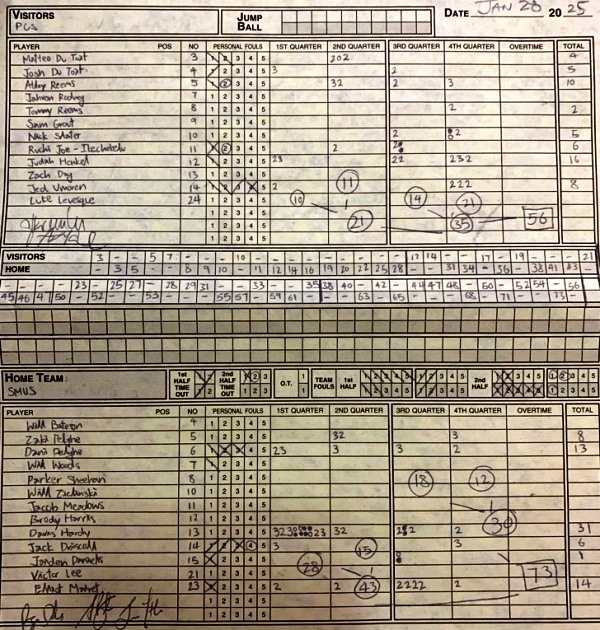 VISITORS PCS JUMP BALL DATE JAN 28 20 25
PLAYER POS NO PERSONAL FOULS 1ST QUARTER 2ND QUARTER 3RD QUARTER 4TH QUARTER OVERTIME TOTAL
Matteo Du Toit 3 1 2 3 4 5 202 4
Josh Du Toit 4 1 2 3 4 5 3 2 5
Reems 5 1 2 3 4 5 32 2 3 10
7 1 2 3 4 5
Tommy Reems 8 1 2 3 4 5 2 2
Sam Grout 9 1 2 3 4 5
Nick Slater 10 1 2 3 4 5 2 2 5
11 1 2 3 4 5 2 2 6
Judah Henkel 12 1 2 3 4 5 23 22 232 16
Zach Day 13 1 2 3 4 5
Jed 14 1 2 3 4 5 2 11 222 8
Luke Levesque 24 1 2 3 4 5 10 14 21
1 2 3 4 5 21 35 56
1 2 3 4 5
VISITORS 3 - - 5 7 - - - 10 - - - - - - - - - 17 14 - - 17 - 19 - - - 21
HOME - 3 5 - - 8 9 10 - 11 12 14 16 19 20 22 25 28 - - 31 34 - 36 - 38 41 43 -
- - - - 23 - 25 27 - 28 29 31 - - 33 - - 35 38 40 - 42 - 44 47 48 - 50 52 54 - 56
45 46 47 50 - 52 - - 53 - - - 55 57 - 59 61 - - - 63 - 65 - - - 68 - 71 - - 73 -
HOME TEAM: SMUS 1ST HALF TIME OUT 1 2 2ND HALF TIME OUT 1 2 3 O.T. 1 TEAM FOULS 1ST HALF 2ND HALF
PLAYER POS NO PERSONAL FOULS 1ST QUARTER 2ND QUARTER 3RD QUARTER 4TH QUARTER OVERTIME TOTAL
Will Bateson 4 1 2 3 4 5
Zakk Pelighe 5 1 2 3 4 5 32 3 8
Pelighe 6 1 2 3 4 5 23 3 3 2 13
Will Woods 7 1 2 3 4 5
Parker Sheehan 8 1 2 3 4 5 18 12
Will Zielinski 10 1 2 3 4 5
Jacob Meadows 11 1 2 3 4 5
Brody Harris 12 1 2 3 4 5 30
Davis Hardy 13 1 2 3 4 5 32 2 31
Jack Driscoll 14 1 2 3 4 5 3 15 3 6
Jorden Daniels 15 1 2 3 4 5 1
Victor Lee 21 1 2 3 4 5 28 73
23 1 2 3 4 5 2 2 43 2222 2 14
1 2 3 4 5
1 2 3 4 5